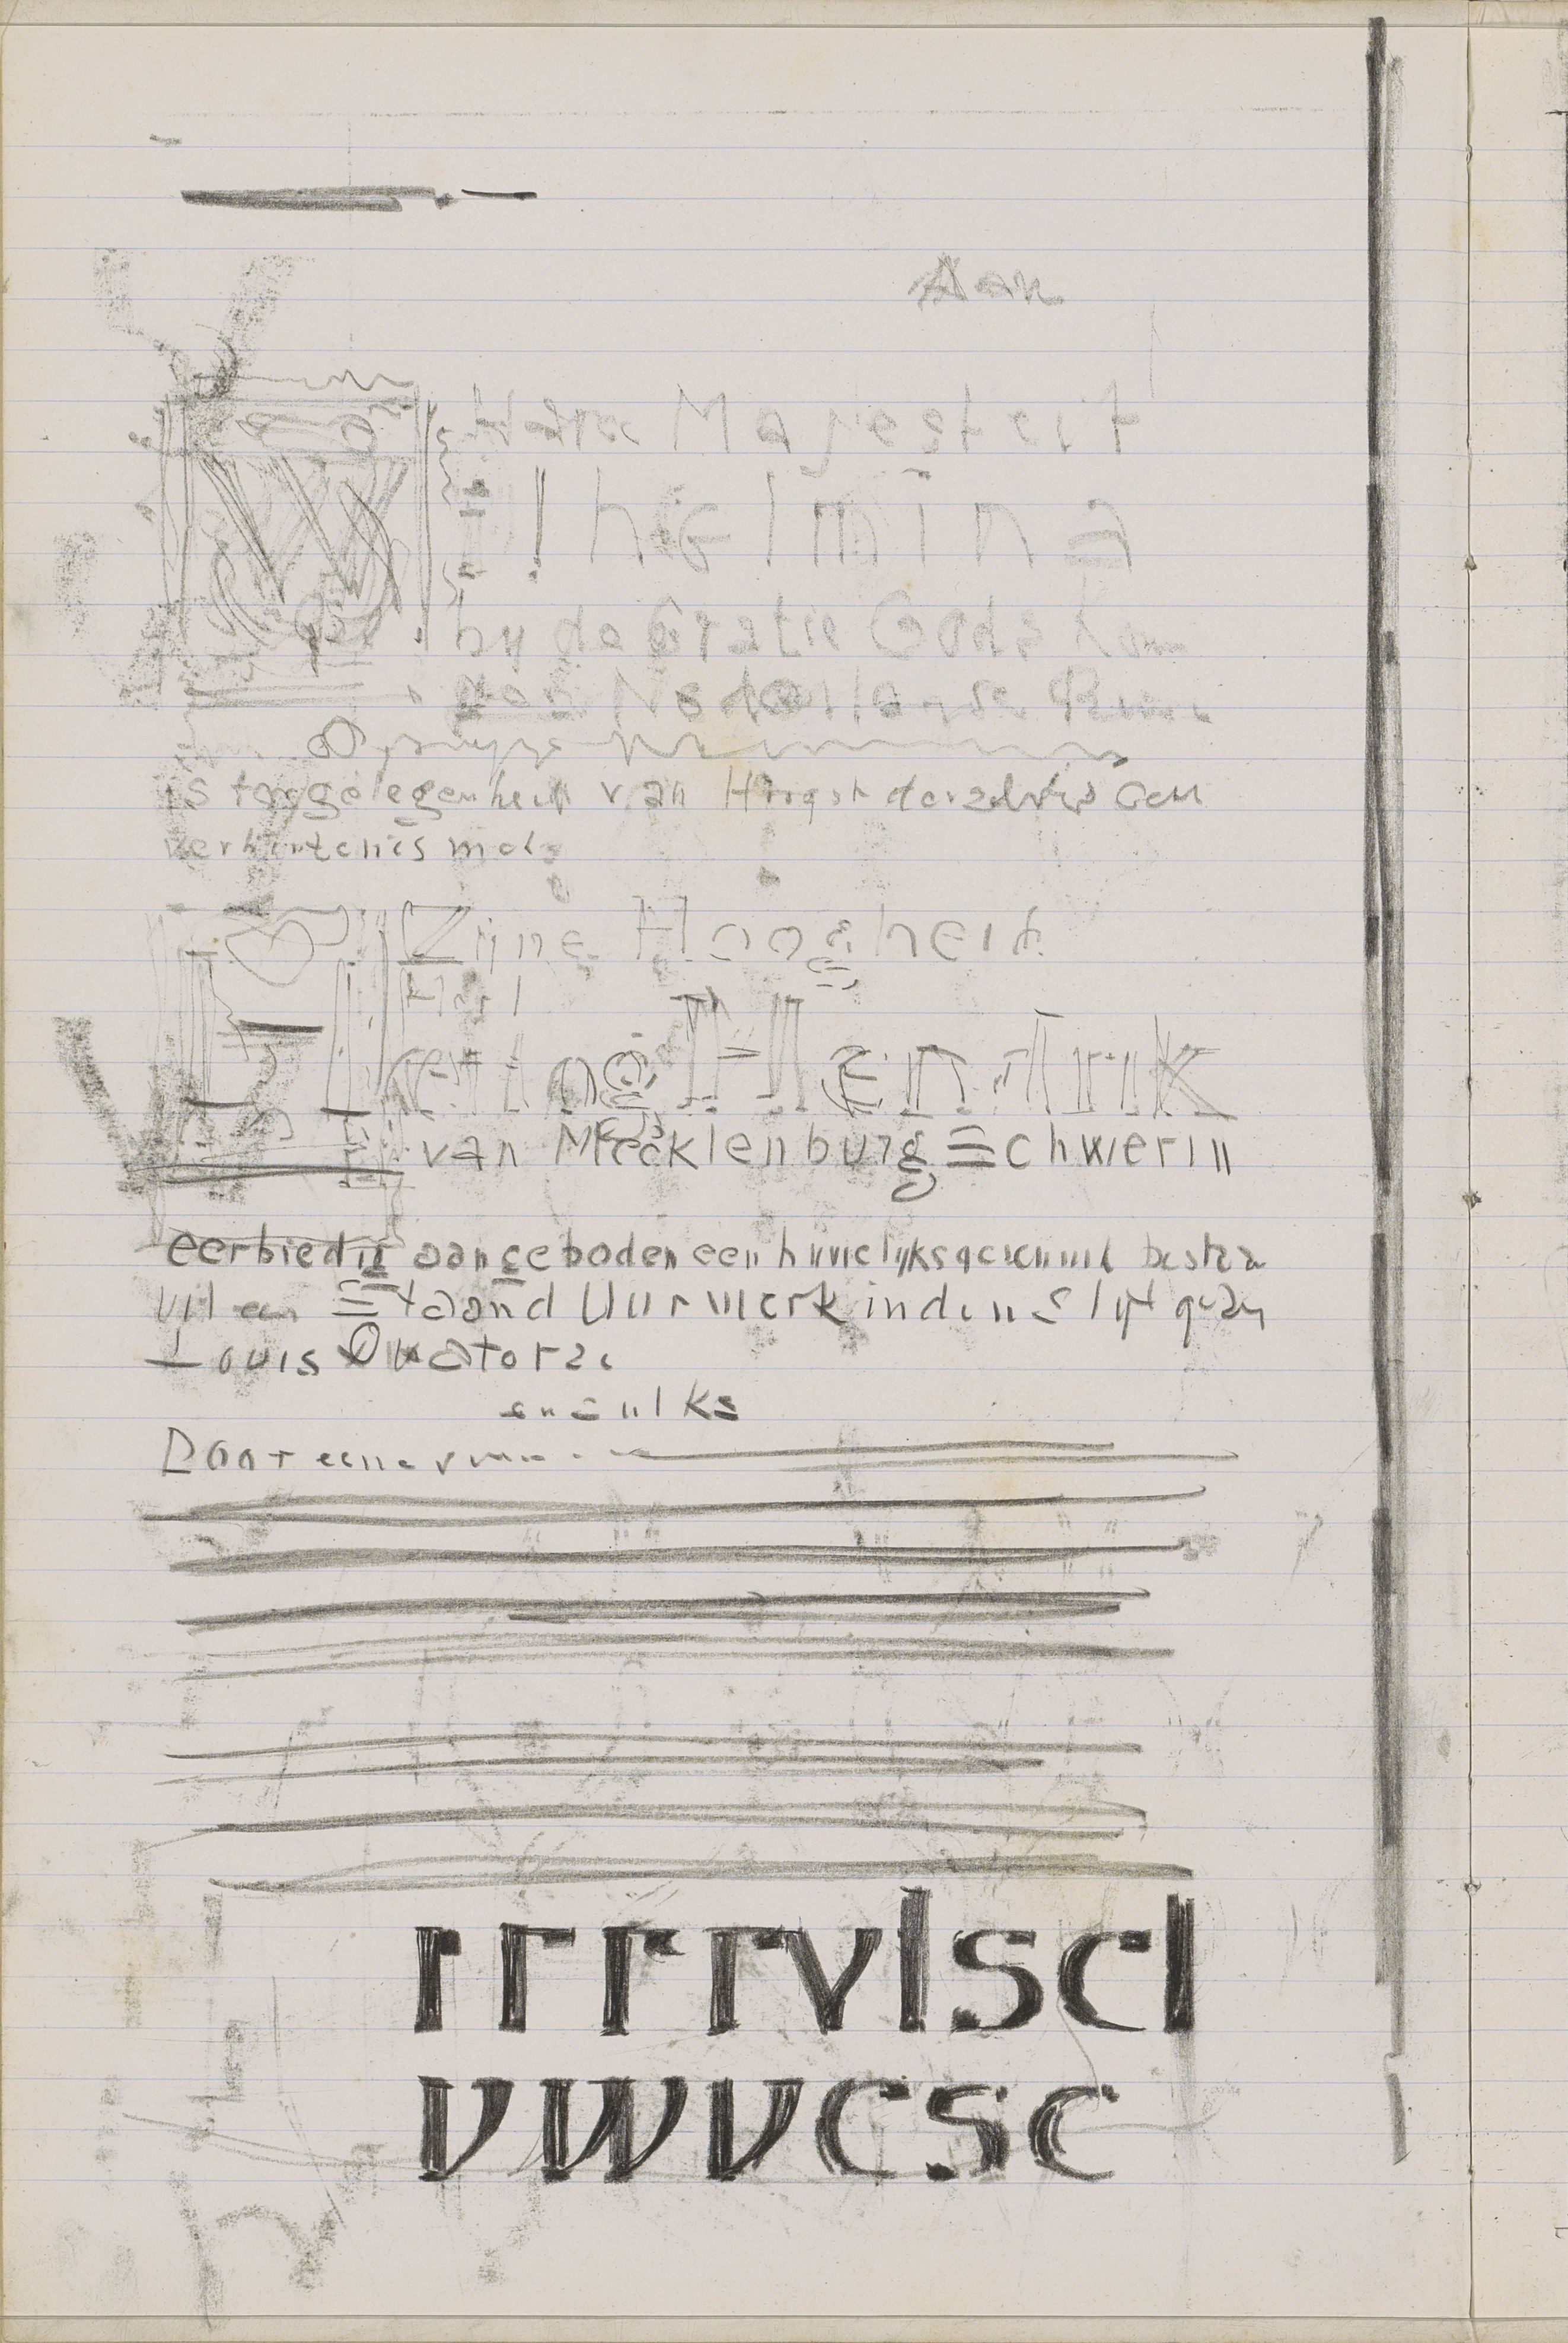 Aan
Hare Majesteit
W ilhelmina
by de Gratie Gods
der Nederlanden
is tergelegenheid van Hoogst derzelver
verbintenis met
Zijne Hoogheid
Hertog Hendrik
van Mecklenburg Schwerin
eerbiedig aangeboden een huwelijksgeschenk bestaande
uit een Staand Uurwerk in den Stijl van
Louis Quatorze
en zulks
Door eene
rrrrvlscl
vwvcsc